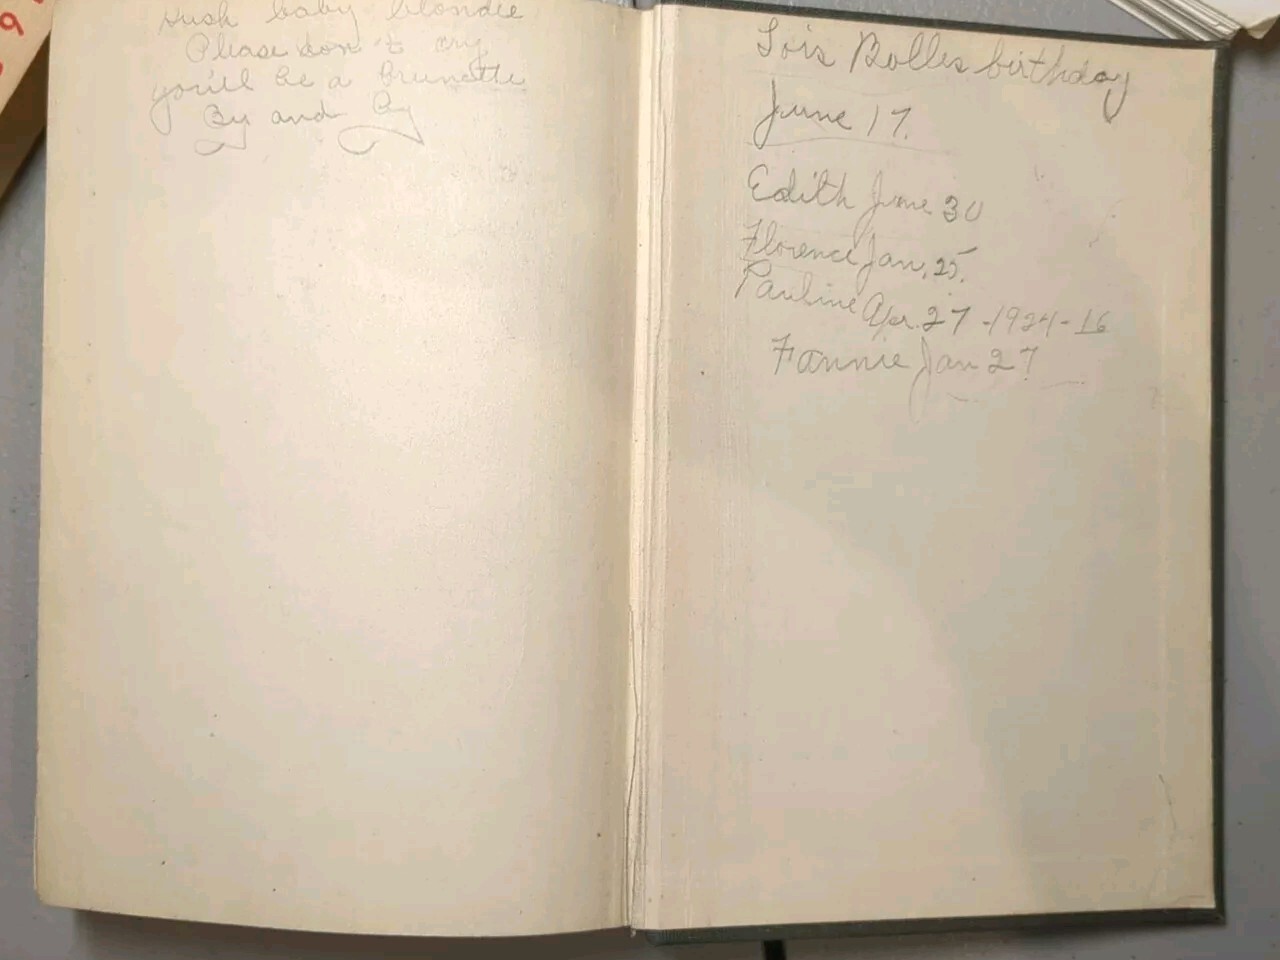 Hush baby blondie
Please don't cry
you'll be a Brunette
By and By
Lois Bolles birthday
June 17.
Edith June 30
Florence Jan. 25.
Pauline Apr. 27 - 1924 - 16
Fannie Jan 27
9